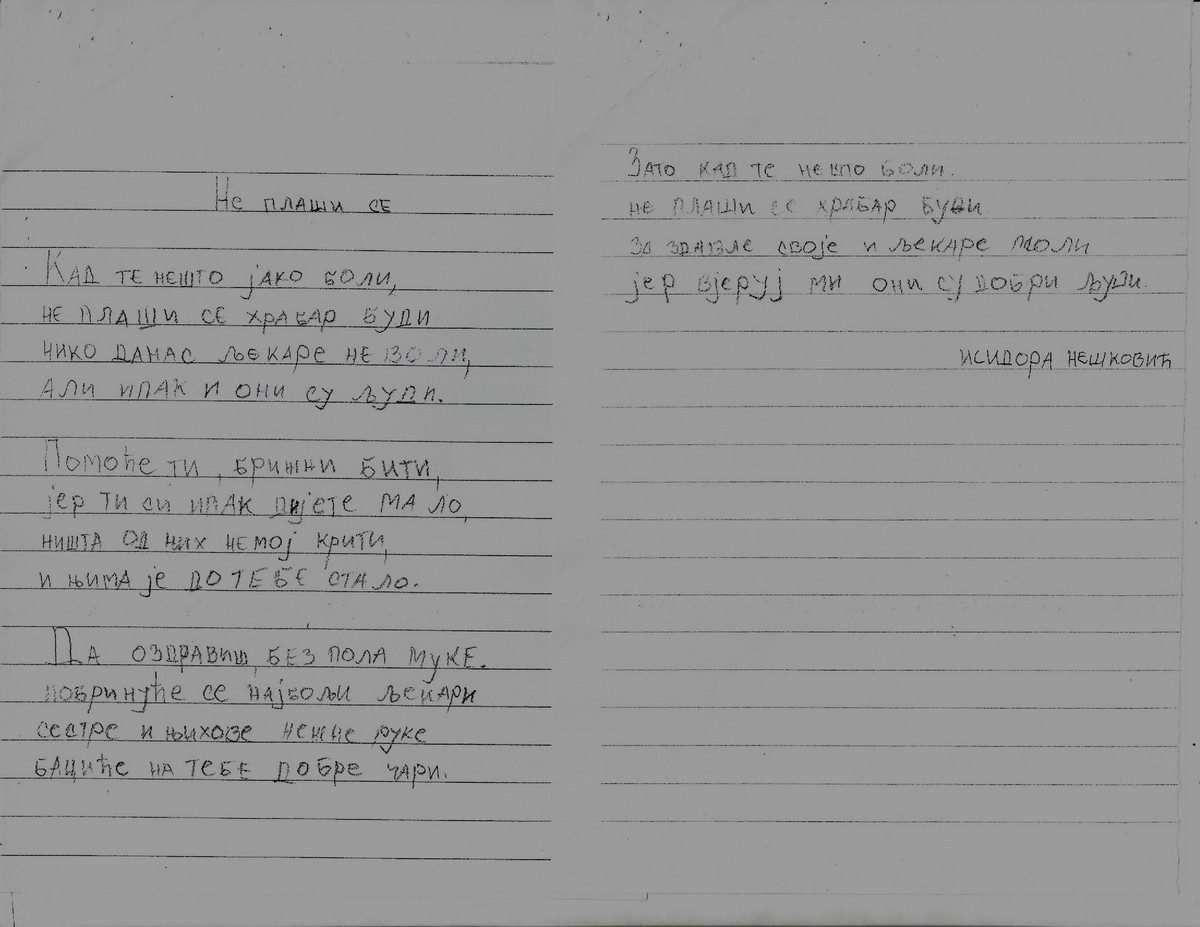 Не плаши се
Кад те нешто јако боли,
не плаши се храбар буди
нико данас љекаре не воли,
али ипак и они су људи.
Помоће ти, брижни бити,
јер ти си ипак дијете мало,
ништа од њих немој крити,
и њима је до тебе стало.
Да оздравиш, без пола муке.
побринуће се најбољи љекари
сестре и њихове нежне руке
бациће на тебе добре чари.
Зато кад те нешто боли.
не плаши се храбар буди
за здравле своје и љекаре моли
јер вјеруј ми они су добри људи.
Исидора Нешковић